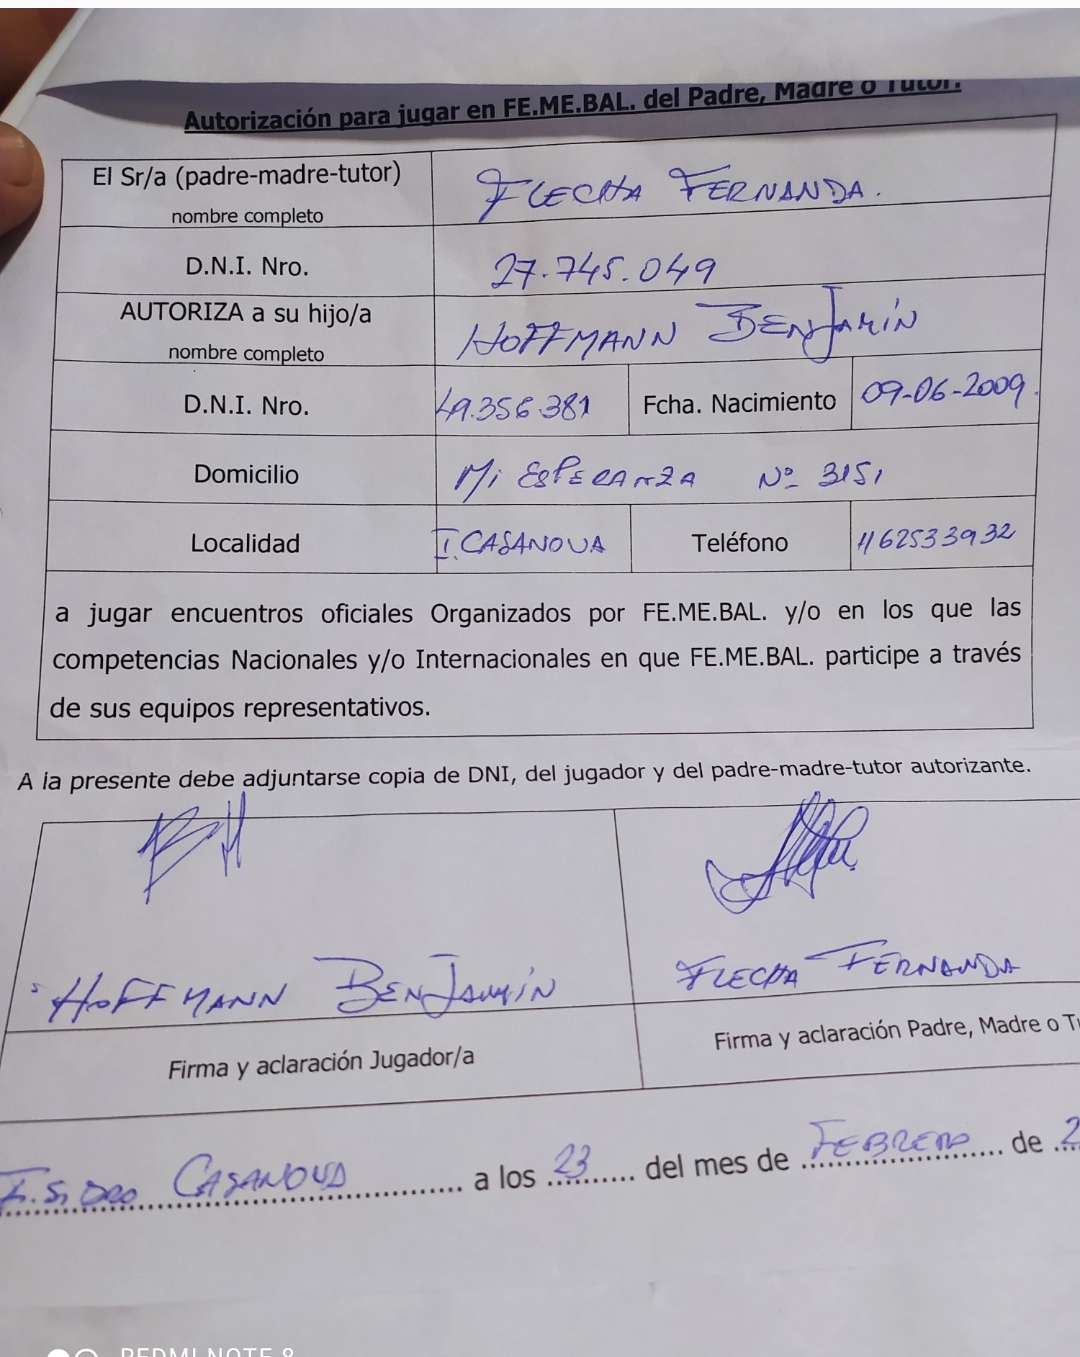 Autorización para jugar en FE.ME.BAL. del Padre, Madre o Tutor.
El Sr/a (padre-madre-tutor) FLECHA FERNANDA.
nombre completo
D.N.I. Nro. 27.745.049
AUTORIZA a su hijo/a HOFFMANN BENJAMÍN
nombre completo
D.N.I. Nro. 49.356.381 Fcha. Nacimiento 09-06-2009.
Domicilio Mi ESPERANZA Nº 3151
Localidad I.CASANOVA Teléfono 1162533932
a jugar encuentros oficiales Organizados por FE.ME.BAL. y/o en los que las
competencias Nacionales y/o Internacionales en que FE.ME.BAL. participe a través
de sus equipos representativos.
A la presente debe adjuntarse copia de DNI, del jugador y del padre-madre-tutor autorizante.
HOFFMANN BENJAMÍN FLECHA FERNANDA
Firma y aclaración Jugador/a Firma y aclaración Padre, Madre o Tu
I.SIDRO CASANOVA a los 23 del mes de FEBRERO de 2
REDMI NOTE 8